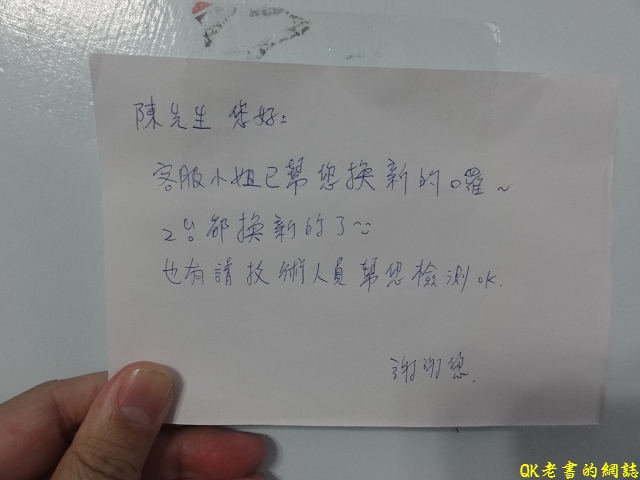 陳先生 您好:
客服小姐已幫您換新的囉~
2台都換新的了
也有請技術人員幫您檢測OK.
謝謝您.
QK老書的網誌